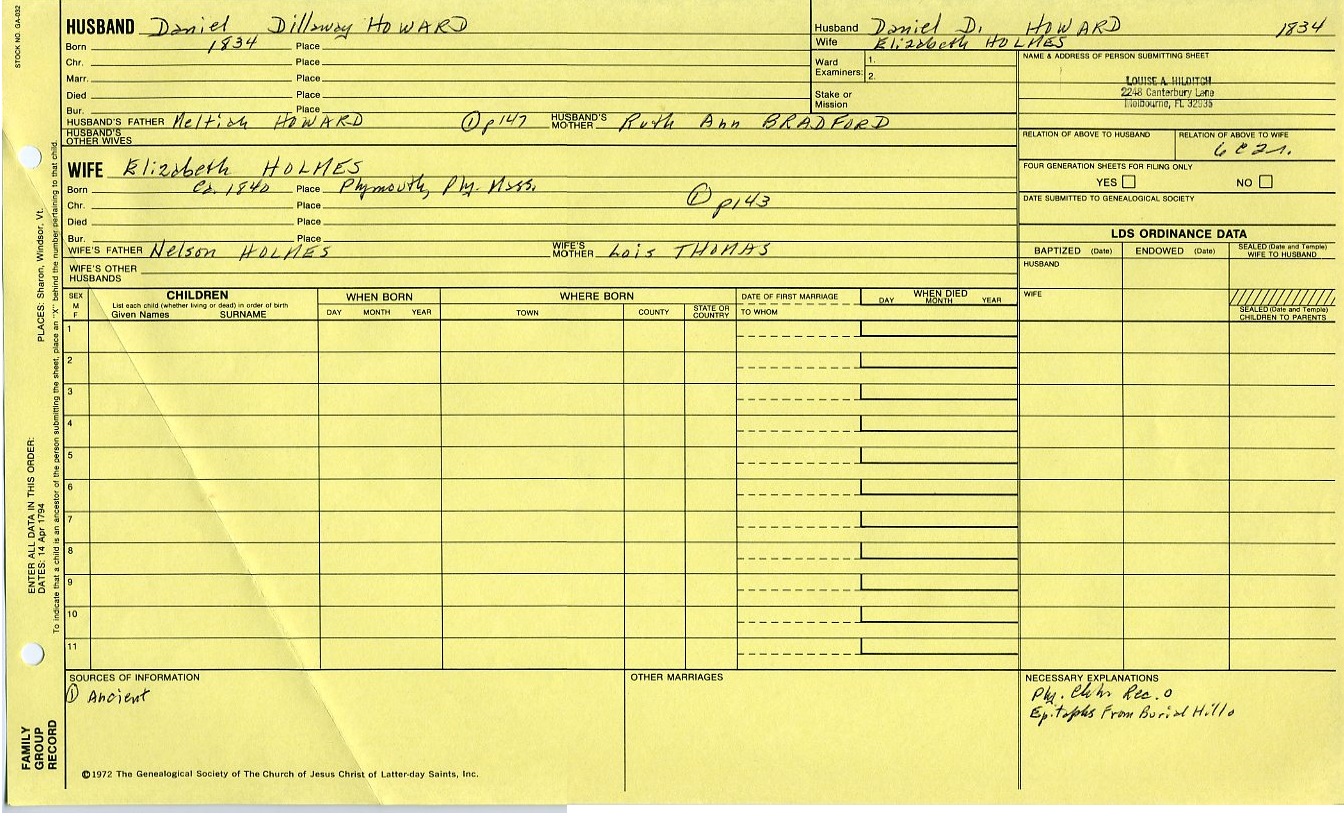 STOCK NO. GA-032
HUSBAND Daniel Dillaway HOWARD
Born 1834 Place
Chr. Place
Marr. Place
Died Place
Bur. Place
HUSBAND'S FATHER Meltiah HOWARD ① p147 HUSBAND'S MOTHER Ruth Ann BRADFORD
HUSBAND'S OTHER WIVES
Husband Daniel D. HOWARD 1834
Wife Elizabeth HOLMES
Ward Examiners: 1.
2.
Stake or Mission
NAME & ADDRESS OF PERSON SUBMITTING SHEET
LOUISE A. HILDITCH
2248 Canterbury Lane
Melbourne, FL 32935
RELATION OF ABOVE TO HUSBAND RELATION OF ABOVE TO WIFE
6C2r.
FOUR GENERATION SHEETS FOR FILING ONLY
YES NO
DATE SUBMITTED TO GENEALOGICAL SOCIETY
WIFE Elizabeth HOLMES
Born Ca. 1840 Place Plymouth, Ply. Mass.
Chr. Place ① p143
Died Place
Bur. Place
WIFE'S FATHER Nelson HOLMES WIFE'S MOTHER Lois THOMAS
WIFE'S OTHER HUSBANDS
LDS ORDINANCE DATA
BAPTIZED (Date) ENDOWED (Date) SEALED (Date and Temple) WIFE TO HUSBAND
HUSBAND
WIFE
SEALED (Date and Temple) CHILDREN TO PARENTS
SEX M F
CHILDREN
List each child (whether living or dead) in order of birth
Given Names SURNAME
WHEN BORN
DAY MONTH YEAR
WHERE BORN
TOWN COUNTY STATE OR COUNTRY
DATE OF FIRST MARRIAGE
TO WHOM
WHEN DIED
DAY MONTH YEAR
1
2
3
4
5
6
7
8
9
10
11
SOURCES OF INFORMATION
① Ancient
OTHER MARRIAGES
NECESSARY EXPLANATIONS
Ply. Rec.
Epitaphs From Burial Hill
©1972 The Genealogical Society of The Church of Jesus Christ of Latter-day Saints, Inc.
FAMILY GROUP RECORD
ENTER ALL DATA IN THIS ORDER:
DATES: 14 Apr 1794 PLACES: Sharon, Windsor, Vt.
To indicate that a child is an ancestor of the person submitting the sheet, place an "X" behind the number pertaining to that child.